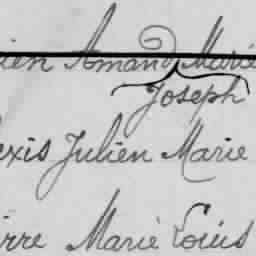 ien Amand Marie
Joseph
exis Julien Marie
erre Marie Louis